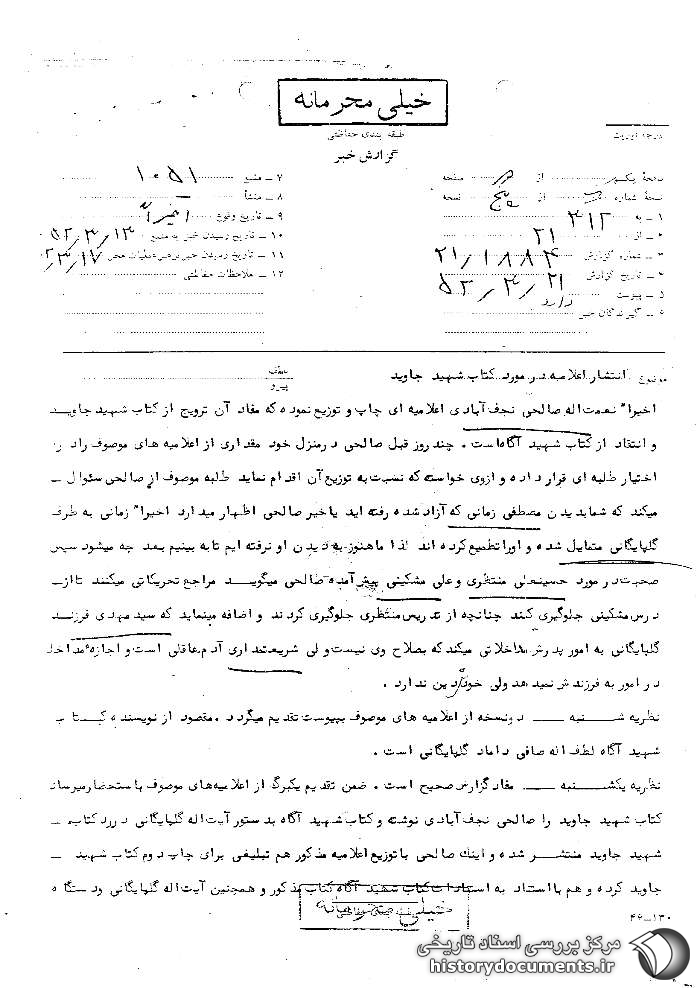 خیلی محرمانه
طبقه بندی حفاظتی
گزارش خبر
نسخه شماره از پنج نسخه
۱ ـ به ۳۱۲
۲ ـ از ۲۱
۳ ـ شماره گزارش ۲۱/۱۸۸۴
۴ ـ تاریخ گزارش ۵۲/۳/۲۱
۵ ـ پیوست دارد
۶ ـ گیرندگان خبر
۷ ـ منبع ۱۰۵۱
۸ ـ منشأ ـ
۹ ـ تاریخ وقوع اخیراً
۱۰ ـ تاریخ رسیدن خبر به منبع ۵۲/۳/۱۳
۱۱ ـ تاریخ رسیدن خبر به رهبر عملیات محل ۵۲/۳/۱۷
۱۲ ـ ملاحظات حفاظتی
موضوع انتشار اعلامیه در مورد کتاب شهید جاوید
عطف
پیرو
اخیرا" نعمت اله صالحی نجف آبادی اعلامیه ای چاپ و توزیع نموده که مفاد آن ترویج از کتاب شهید جاوید
و انتقاد از کتاب شهید آگاه است . چند روز قبل صالحی در منزل خود مقداری از اعلامیه های موصوف را در
اختیار طلبه ای قرار داده و از وی خواسته که نسبت به توزیع آن اقدام نماید طلبه موصوف از صالحی سئوال ـ
میکند که شما بدیدن مصطفی زمانی که آزاد شده رفته اید یا خیر صالحی اظهار میدارد اخیرا" زمانی به طرف
گلپایگانی متمایل شده و او را تطمیع کرده اند لذا ما هنوز به دیدن او نرفته ایم تا به بینیم بعد چه میشود سپس
صحبت در مورد حسینعلی منتظری و علی مشکینی پیش آمده صالحی میگوید مراجع تحریکاتی میکنند تا از ـ
درس مشکینی جلوگیری کنند چنانچه از تدریس منتظری جلوگیری کردند و اضافه مینماید که سید مهدی فرزند
گلپایگانی به امور پدرش مداخلاتی میکند که بصلاح وی نیست ولی شریعتمداری آدم عاقلی است و اجازه مداخله
در امور به فرزندش نمیدهد ولی خود دین ندارد .
نظریه شنبه ـــ دو نسخه از اعلامیه های موصوف بپیوست تقدیم میگردد . مقصود از نویسنده کتاب
شهید آگاه لطف اله صافی داماد گلپایگانی است .
نظریه یکشنبه ـــ مفاد گزارش صحیح است . ضمن تقدیم یکبرگ از اعلامیه های موصوف باستحضار میرساند
کتاب شهید جاوید را صالحی نجف آبادی نوشته و کتاب شهید آگاه بدستور آیت اله گلپایگانی در رد کتاب ـ
شهید جاوید منتشر شده و اینک صالحی با توزیع اعلامیه مذکور هم تبلیغی برای چاپ دوم کتاب شهید ـ
جاوید کرده و هم با استناد به استنادات کتاب شهید آگاه کتاب مذکور و همچنین آیت اله گلپایگانی و دستگاه
خیلی محرمانه
۴۶-۱۳۰
مرکز بررسی اسناد تاریخی
historydocuments.ir